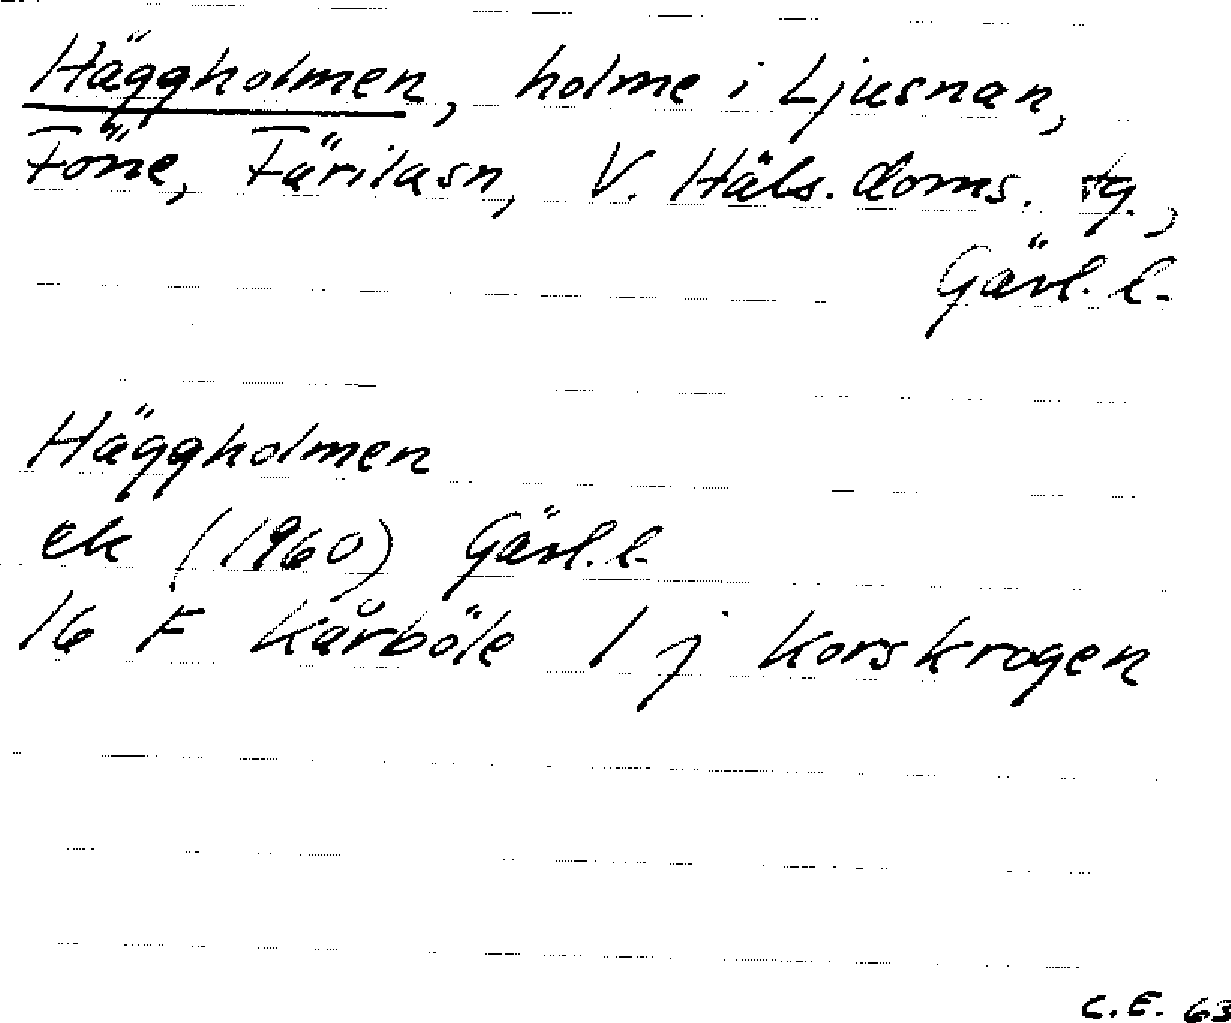 Häggholmen, holme i Ljusnan,
Föne, Färila sn, V. Häls. doms. tg.,
Gävl. l.
Häggholmen
ek (1960) Gävl. l.
16 F Kårböle 1 j Korskrogen
C.E. 63